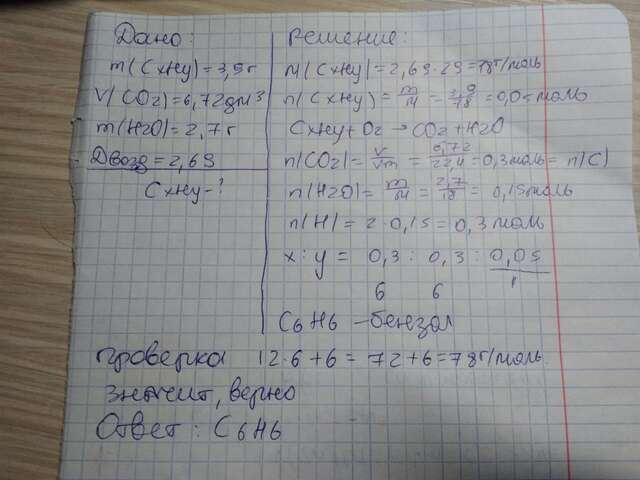 Дано:
m(CxHy)=3,9г
V(CO2)=6,72дм3
m(H2O)=2,7г
Dвозд=2,69
CxHy-?
Решение:
M(CxHy)=2,69·29=78г/моль
n(CxHy)=m/M=3,9/78=0,05моль
CxHy+O2→CO2+H2O
n(CO2)=V/Vm=6,72/22,4=0,3моль=n(C)
n(H2O)=m/M=2,7/18=0,15моль
n(H)=2·0,15=0,3моль
x:y=0,3:0,3:0,05
6 6 1
C6H6-бензол
Проверка 12·6+6=72+6=78г/моль.
Значит, верно
Ответ: C6H6